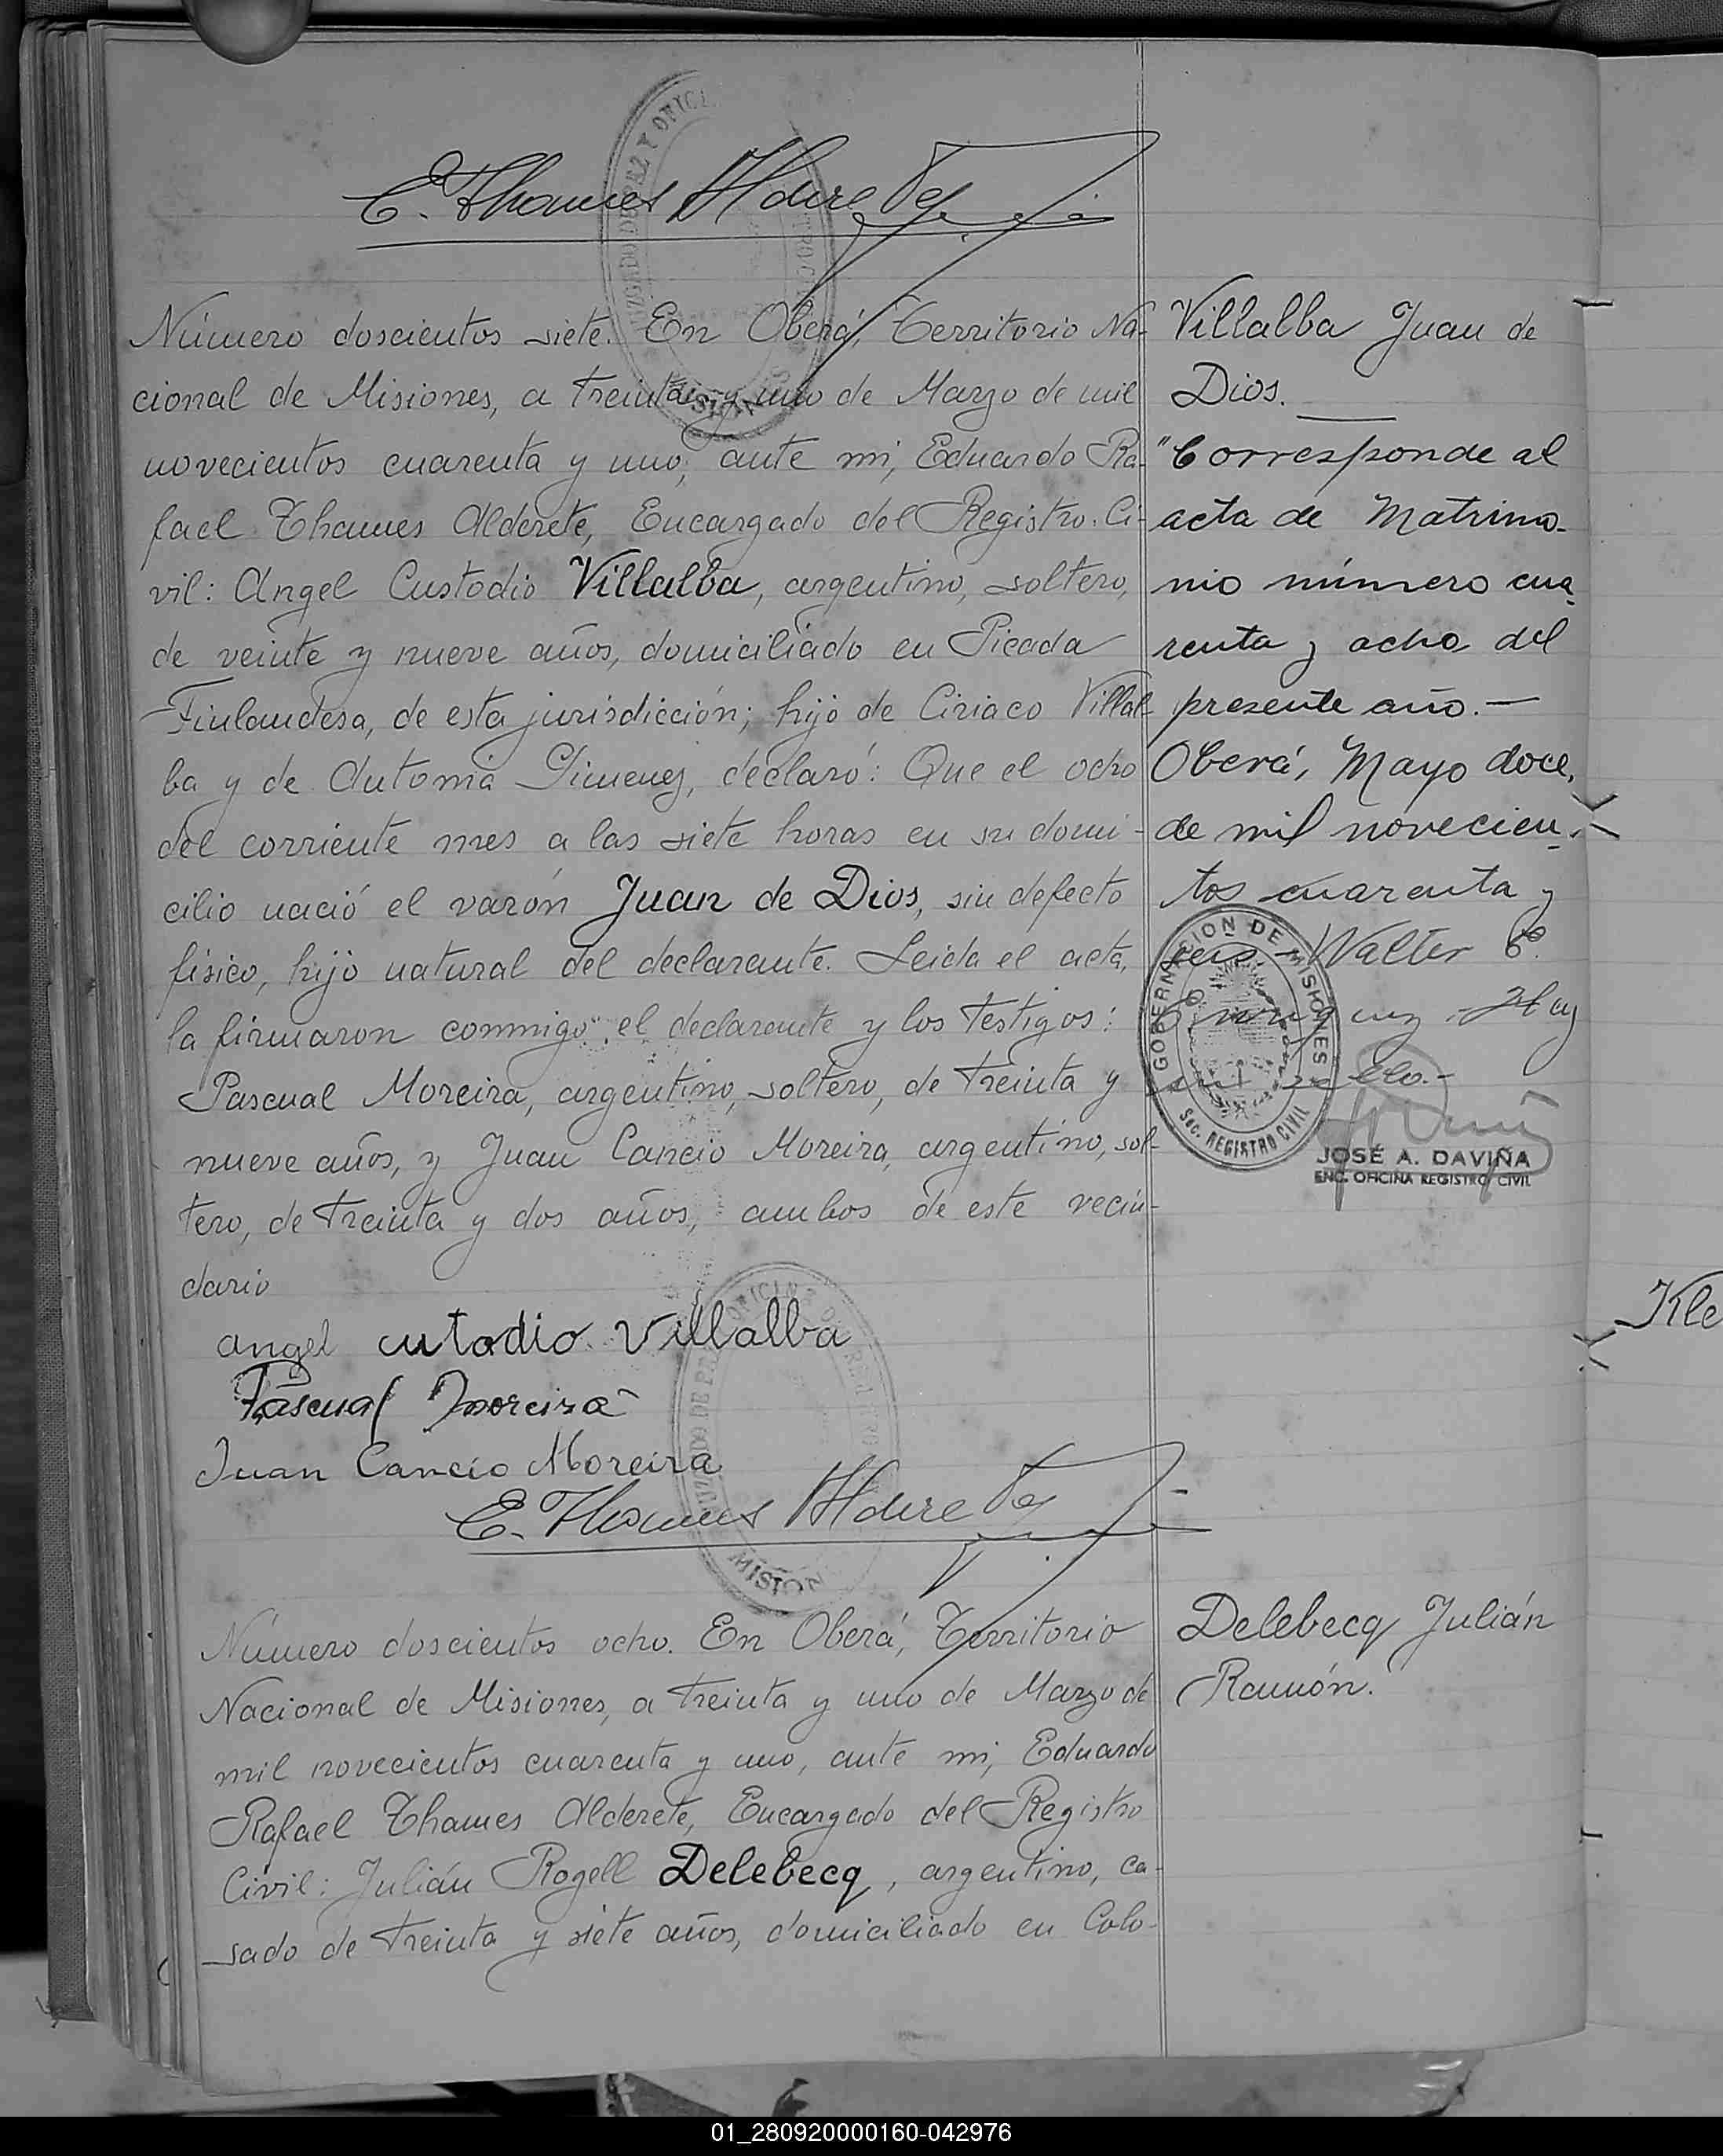 E. Thames Alderete
Número doscientos siete. En Oberá, Territorio Na-
cional de Misiones, a treinta y uno de Marzo de mil
novecientos cuarenta y uno, ante mi, Eduardo Ra-
fael Thames Alderete, Encargado del Registro Ci-
vil: Angel Custodio Villalba, argentino, soltero,
de veinte y nueve años, domiciliado en Picada
Finlandesa, de esta jurisdicción; hijo de Ciriaco Villal-
ba y de Antonia Gimenez, declaró: Que el ocho
del corriente mes a las siete horas en su domi-
cilio nació el varón Juan de Dios, sin defecto
físico, hijo natural del declarante. Leida el acta,
la firmaron conmigo el declarante y los testigos:
Pascual Moreira, argentino, soltero, de treinta y
nueve años, y Juan Cancio Moreira, argentino, sol-
tero, de treinta y dos años, ambos de este vecin-
dario
angel cutodio villalba
Pascual Moreira
Juan Cancio Moreira
E. Thames Alderete
Villalba Juan de
Dios.
"Corresponde al
acta de Matrimo-
nio número cua-
renta y ocho del
presente año.-
Oberá, Mayo doce,
de mil novecien-
tos cuarenta y
seis.- Walter
Hay
un sello.-
GOBERNACION DE MISIONES
Sec. REGISTRO CIVIL
JOSÉ A. DAVIÑA
ENC. OFICINA REGISTRO CIVIL
Número doscientos ocho. En Oberá, Territorio
Nacional de Misiones, a treinta y uno de Marzo de
mil novecientos cuarenta y uno, ante mi, Eduardo
Rafael Thames Alderete, Encargado del Registro
Civil: Julián Rogell Delebecq, argentino, ca-
sado de treinta y siete años, domiciliado en Colo-
Delebecq Julián
Ramón.
Kle
01_280920000160-042976